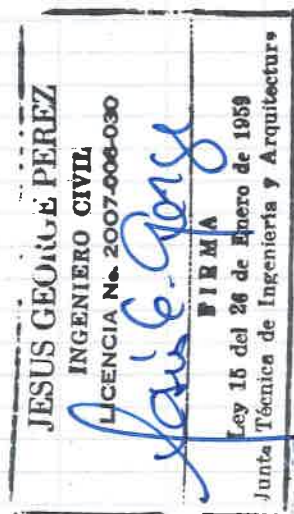 JESUS GEORGE PEREZ
INGENIERO CIVIL
LICENCIA No. 2007-006-030
FIRMA
Ley 15 del 26 de Enero de 1959
Junta Técnica de Ingeniería y Arquitectura